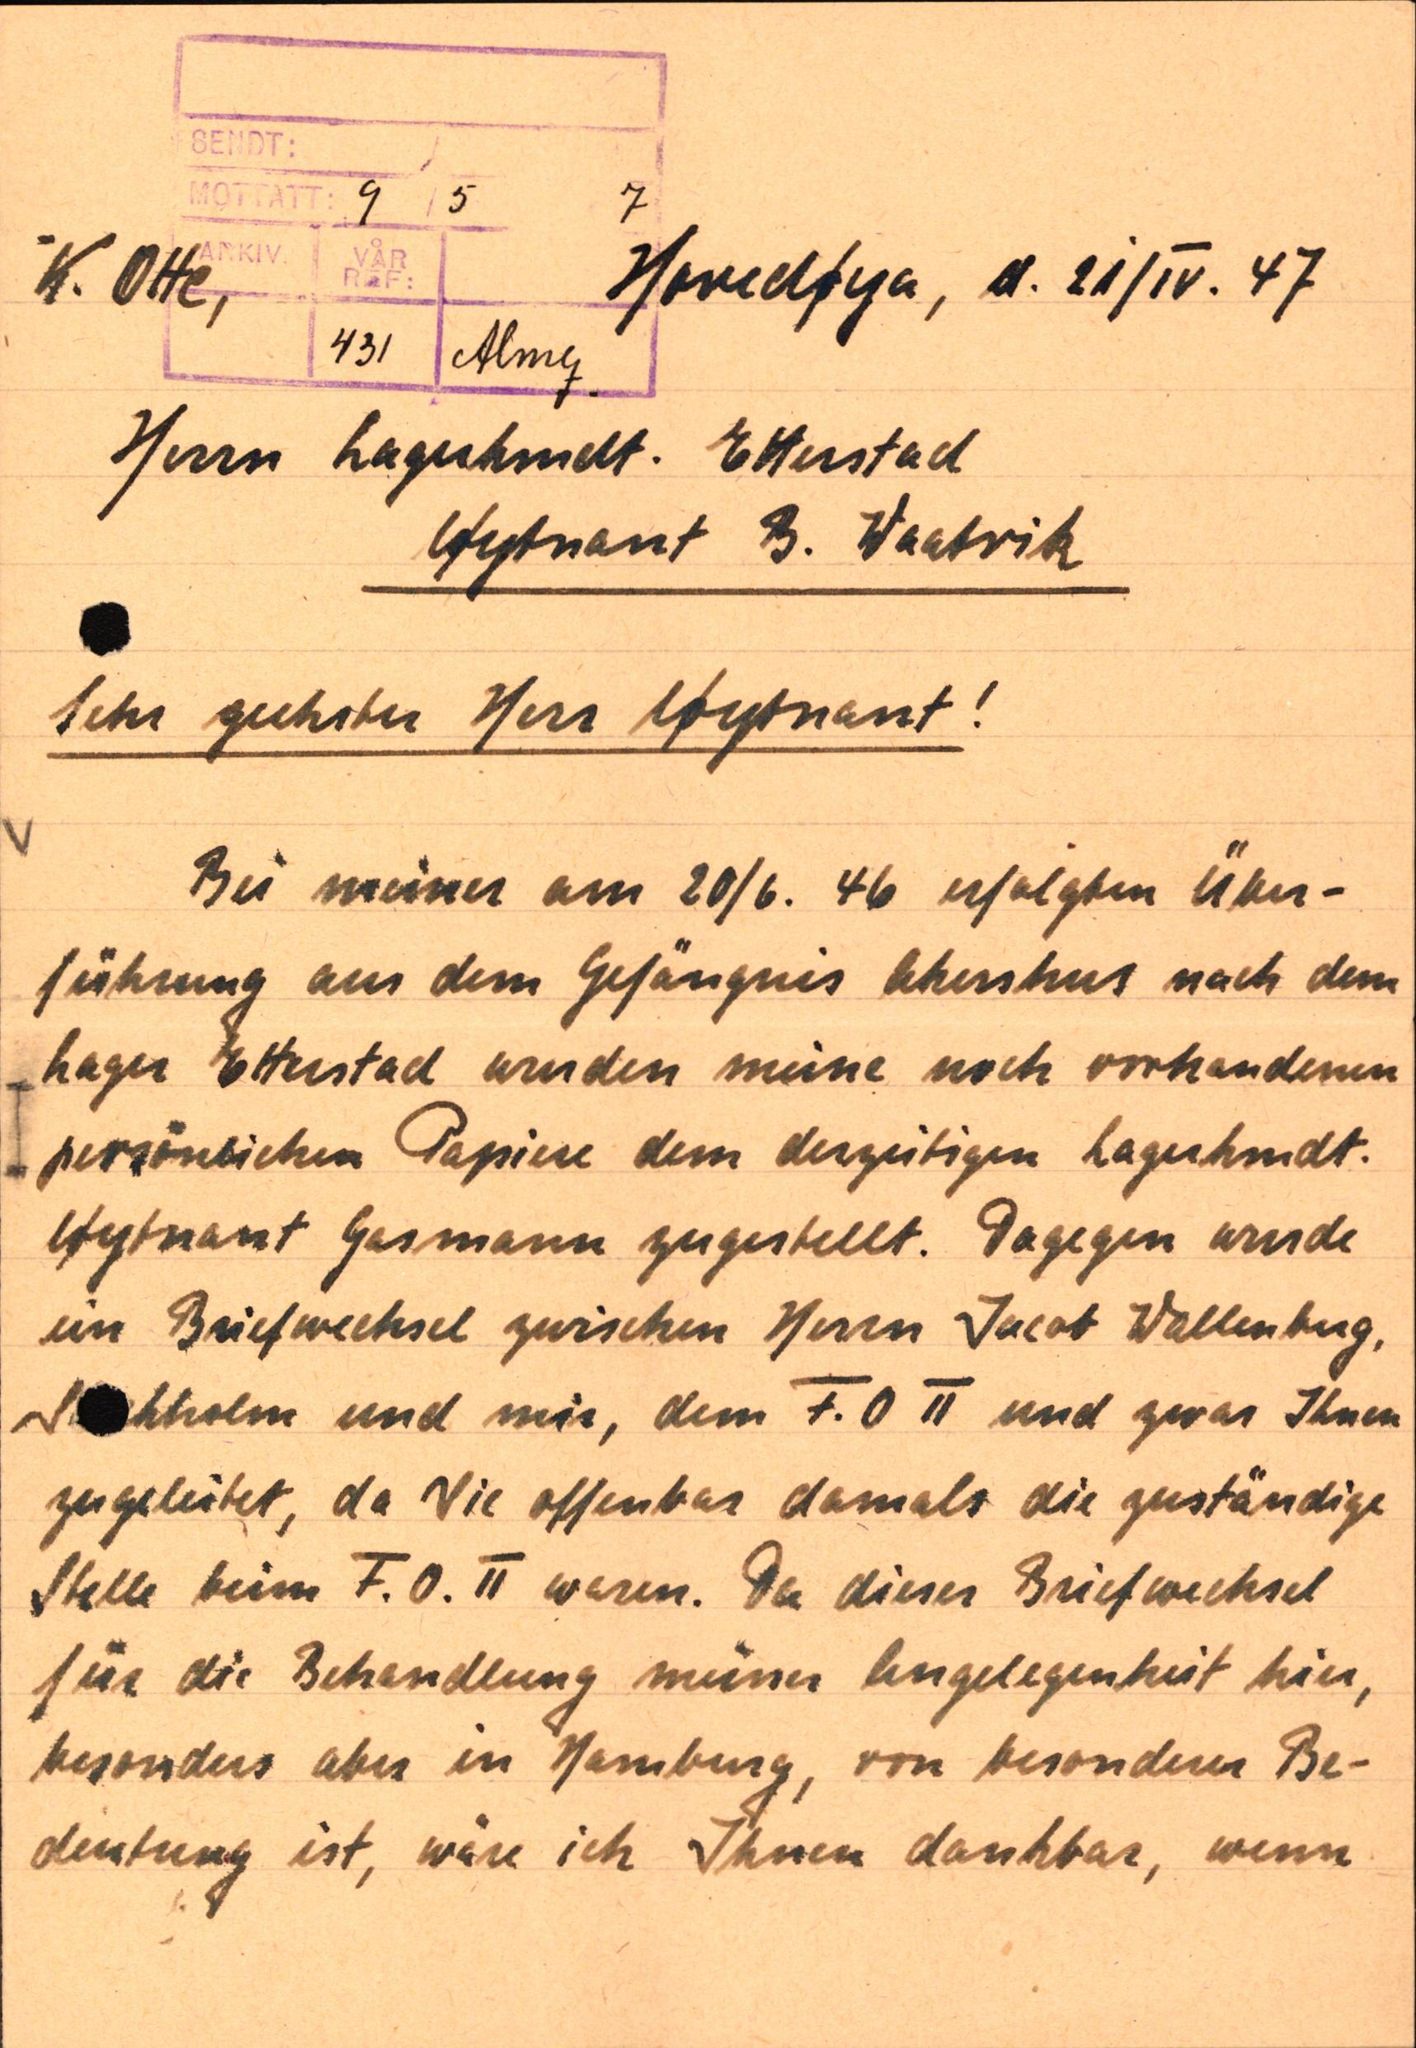 SENDT:
MOTTATT: 9/5 7
ARKIV. VÅR REF:
K. Otte, Hovedøya, d. 21/IV. 47
431 Almq.
Herrn Lagerkmdt. Etterstad
Løytnant B. Waatvik
Sehr geehrter Herr Løytnant!
Bei meiner am 20/6. 46 erfolgten Über-
führung aus dem Gefängnis Akershus nach dem
Lager Etterstad wurden meine noch vorhandenen
persönlichen Papiere dem derzeitigen Lagerkmdt.
Løytnant Gasmann zugestellt. Dagegen wurde
ein Briefwechsel zwischen Herrn Jacob Wallenberg,
Stockholm und mir, dem F.O II und zwar Ihnen
zugeleitet, da Sie offenbar damals die zuständige
Stelle beim F.O. II waren. Da dieser Briefwechsel
für die Behandlung meiner Angelegenheit hier,
besonders aber in Hamburg, von besonderer Be-
deutung ist, wäre ich Ihnen dankbar, wenn